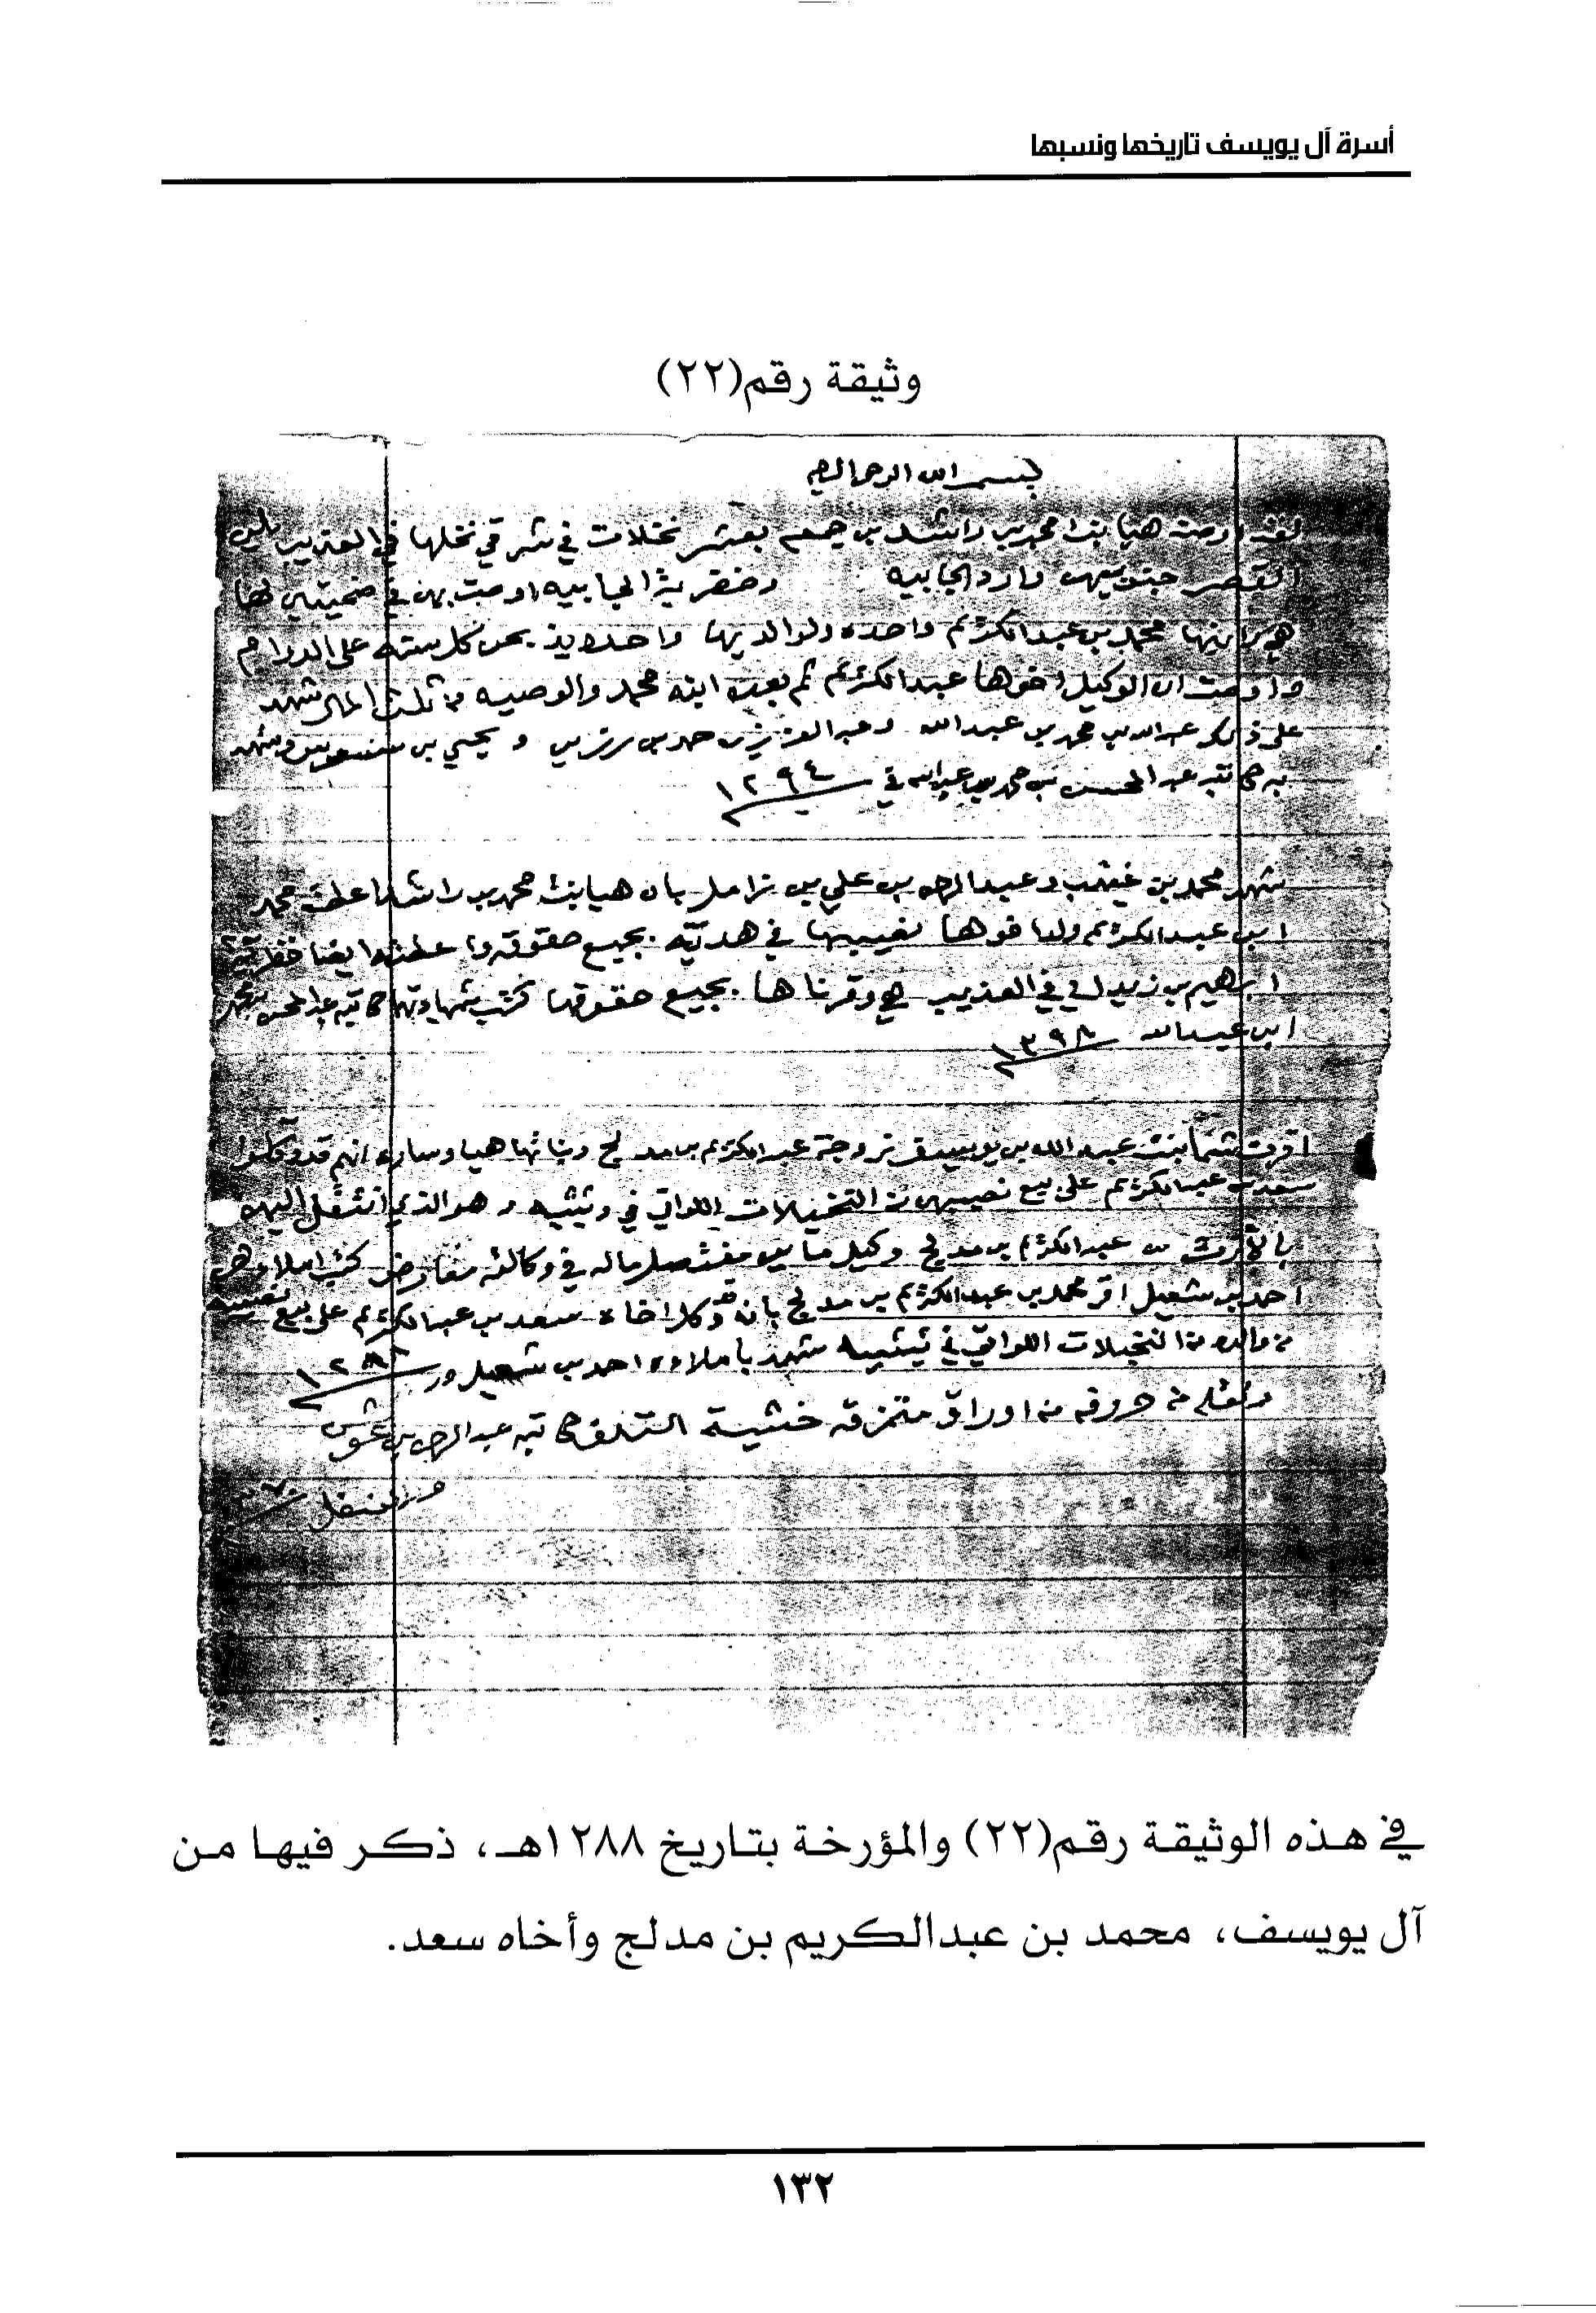 أسرة آل يويسف تاريخها ونسبها
وثيقة رقم(٢٢)
بسم الله الرحمن الرحيم
لقد اوصت هيا بنت محمد بن راشد بن جمعه بعشر نخلات في شرقي نخلها في العذيب
القصر جنوبيهن دارد الجابيه وخضرية الجابيه اوصت بهن في ضحيتين لها
هي وابنها محمد بن عبدالكريم واحده ولوالديها واحده كل سنه على الدوام
واوصت ان الوكيل اخوها عبدالكريم ثم بعده ابنه محمد والوصيه من ثلث المال شهد
على ذلك عبدالله بن محمد بن عبدالله وعبدالعزيز بن حمد بن و يحيى بن وشهد
به كاتبه عبدالمحسن بن محمد بن عبدالله في ١٢٩٤
شهد محمد بن وعبدالرحمن بن علي بن زامل بان هيا بنت محمد بن راشد اعطت محمد
ابن عبدالكريم ولد اخوها نصيبها في بجميع حقوقه واعطته ايضا
ابراهيم بن في العذيب هي بجميع حقوقها كتب شهادتهما كاتبه عبدالمحسن بن محمد
ابن عبدالله ١٣٩٨
اقرت شما بنت عبدالله بن يويسف زوجة عبدالكريم بن مدلج وبناتها هيا وساره انهم قد وكلوا
سعد بن عبدالكريم على بيع نصيبهن من النخيلات اللواتي في وثيثيه وهو الذي انتقل اليهن
بالارث من عبدالكريم بن مدلج وكيل ماله في وكالته مفاوض كتب املاوهن
احمد بن شعيل اقر محمد بن عبدالكريم بن مدلج بانه قد وكل اخاه سعد بن عبدالكريم على بيع نصيبه
من والده من النخيلات اللواتي في شهد باملاوه احمد بن شعيل ١٢٨٨
ونقله من حروفه من اوراق متمزقه خشية التلف كاتبه عبدالرحمن بن
في هذه الوثيقة رقم(٢٢) والمؤرخة بتاريخ ١٢٨٨هـ، ذكر فيها من
آل يويسف، محمد بن عبدالكريم بن مدلج وأخاه سعد.
١٣٢